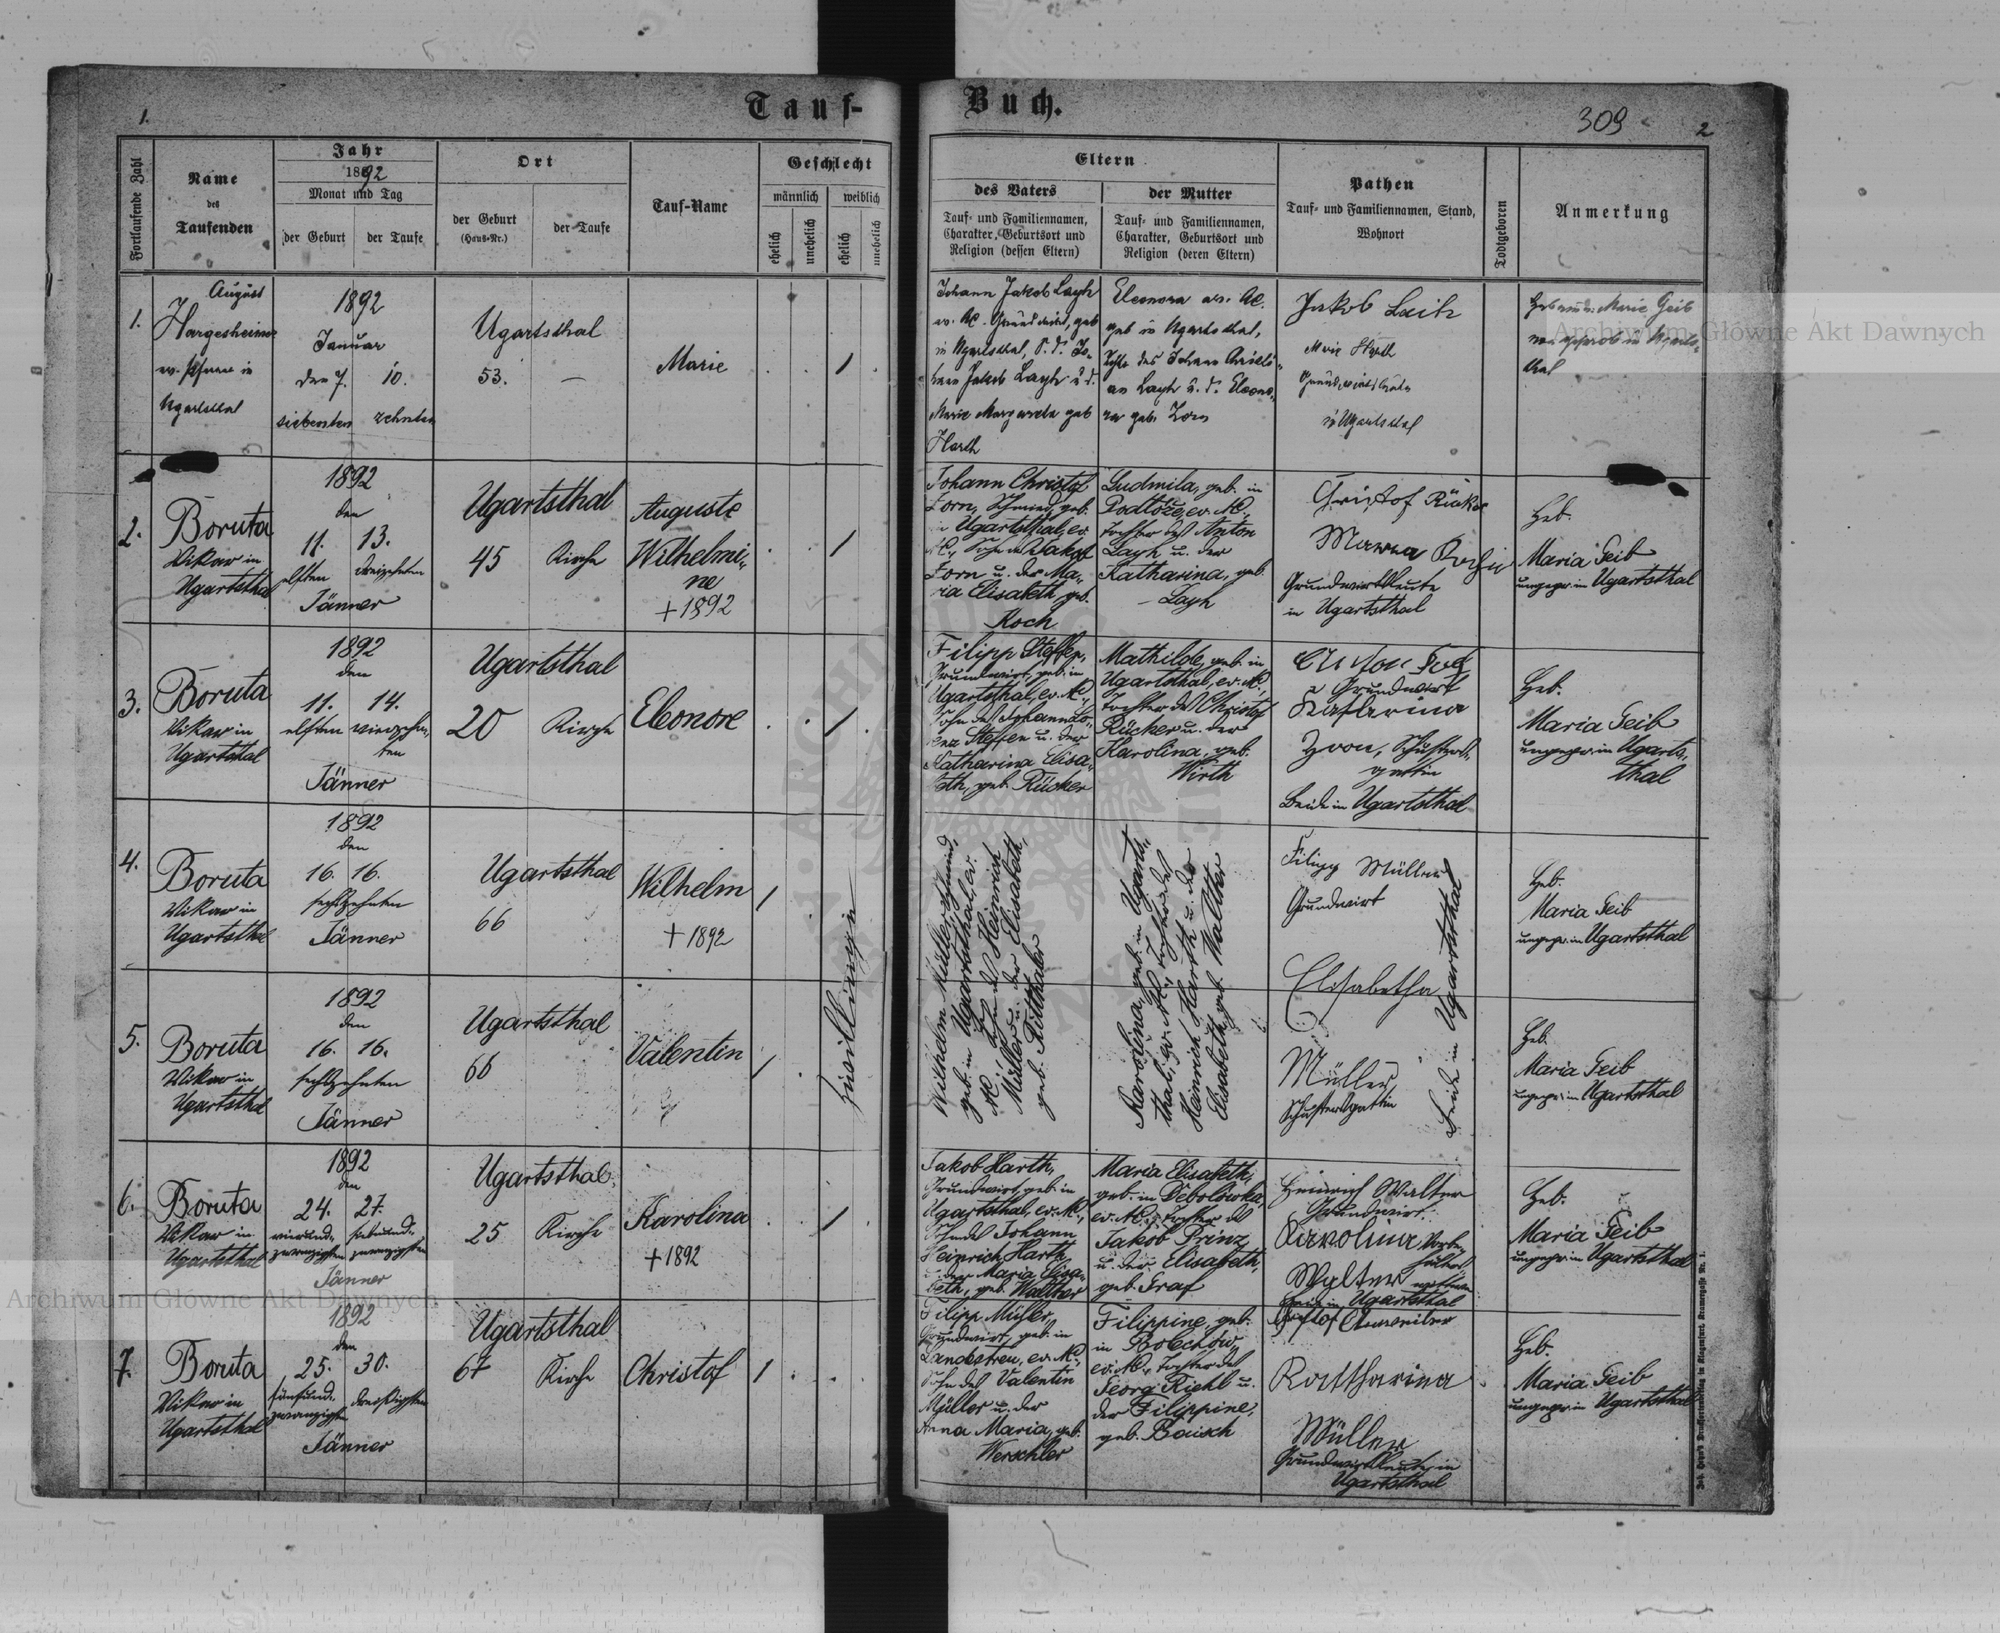 1.
Tauf-
Buch.
309
2
Fortlaufende Zahl
Name
des
Taufenden
Jahr
1892
Monat und Tag
der Geburt
der Taufe
Ort
der Geburt
(Haus-Nr.)
der Taufe
Tauf-Name
Geschlecht
männlich
weiblich
ehelich
unehelich
ehelich
unehelich
Eltern
des Vaters
Tauf- und Familiennamen,
Charakter, Geburtsort und
Religion (dessen Eltern)
der Mutter
Tauf- und Familiennamen,
Charakter, Geburtsort und
Religion (deren Eltern)
Pathen
Tauf- und Familiennamen, Stand,
Wohnort
Todtgeboren
Anmerkung
1.
August
Hargesheimer
ev. Pfarrer in
Ugartsthal
1892
Januar
den 7. 10.
siebenten zehnten
Ugartsthal
53. —
Marie
1
Johann Jakob Layh
ev. AC. Grundwirt, geb
in Ugartsthal, S. d. Jo-
hann Jakob Layh u d.
Marie Margareta geb
Harth
Eleonora ev. AC.
geb in Ugartsthal,
an Layh u. d. Eleono-
ra geb. Zorn
Jakob Laih
Marie Harth
Grundwirtsleute
in Ugartsthal
Hebamme Marie Geib
Archiwum Główne Akt Dawnych
2.
Boruta
Vikar in
Ugartsthal
1892
den
11. 13.
elften dreizehnten
Jänner
Ugartsthal
45 Kirche
Auguste
Wilhelmi-
ne
+ 1892
1
Johann Christof
Zorn, Schmied, geb.
in Ugartsthal, ev.
AC., Sohn des Jakob
Zorn u. der Ma-
ria Elisabeth, geb.
Koch
Ludmila, geb. in
Tochter des Anton
Layh u. der
Katharina, geb.
Layh
Grundwirtsleute
in Ugartsthal
Heb.
Maria Geib
ungepr. in Ugartsthal
3.
Boruta
Vikar in
Ugartsthal
1892
den
11. 14.
elften vierzehn-
ten
Jänner
Ugartsthal
20 Kirche
Eleonore
1
Filipp Steffen,
Grundwirt, geb. in
Ugartsthal, ev. AC.,
Sohn des Johann Lo-
renz Steffen u. der
Katharina Elisa-
beth, geb. Rücker
Mathilde, geb. in
Ugartsthal, ev. AC.,
Tochter des Christof
Rücker u. der
Karolina, geb.
Wirth
Grundwirt
Katharina
Zorn, Schusters-
gattin
Beide in Ugartsthal
Heb.
Maria Geib
ungepr. in Ugarts-
thal
4.
Boruta
Vikar in
Ugartsthal
1892
den
16. 16.
sechzehnten
Jänner
Ugartsthal
66
Wilhelm
+ 1892
1
Zwillinge
Wilhelm Müller, Grundw.
geb. in Ugartsthal, ev.
AC., Sohn des Heinrich
Müller u. der Elisabeth,
geb. Ritthaler
Karolina, geb. in Ugarts-
thal, ev. AC., Tochter des
Heinrich Harth u. der
Elisabeth, geb. Walther
Filipp Müller
Grundwirt
Elisabetha
Müller,
Schustersgattin
Beide in Ugartsthal
Heb.
Maria Geib
ungepr. in Ugartsthal
5.
Boruta
Vikar in
Ugartsthal
1892
den
16. 16.
sechzehnten
Jänner
Ugartsthal
66
Valentin
1
Heb.
Maria Geib
ungepr. in Ugartsthal
6.
Boruta
Vikar in
Ugartsthal
1892
den
24. 27.
vierund- siebenund-
zwanzigsten zwanzigsten
Jänner
Ugartsthal
25 Kirche
Karolina
+ 1892
1
Jakob Harth,
Grundwirt, geb. in
Ugartsthal, ev. AC.,
Sohn des Johann
Heinrich Harth
u. der Maria Elisa-
beth, geb. Walther
Maria Elisabeth,
geb. in Debolowka,
ev. AC., Tochter des
Jakob Prinz
u. der Elisabeth,
geb. Graf
Heinrich Walter
Grundwirt.
Karolina
Walter
Beide in Ugartsthal
Heb.
Maria Geib
ungepr. in Ugartsthal
Archiwum Główne Akt Dawnych
7.
Boruta
Vikar in
Ugartsthal
1892
den
25. 30.
fünfund- dreißigsten
zwanzigsten
Jänner
Ugartsthal
67 Kirche
Christof
1
Filipp Müller,
Grundwirt, geb. in
Landestreu, ev. AC.,
Sohn des Valentin
Müller u. der
Anna Maria, geb.
Werschler
Filippine, geb.
in Bolechów,
ev. AC., Tochter des
Georg Riehl u.
der Filippine,
geb. Baisch
Kattharina
Müller
Grundwirtsleute in
Ugartsthal
Heb.
Maria Geib
ungepr. in Ugartsthal